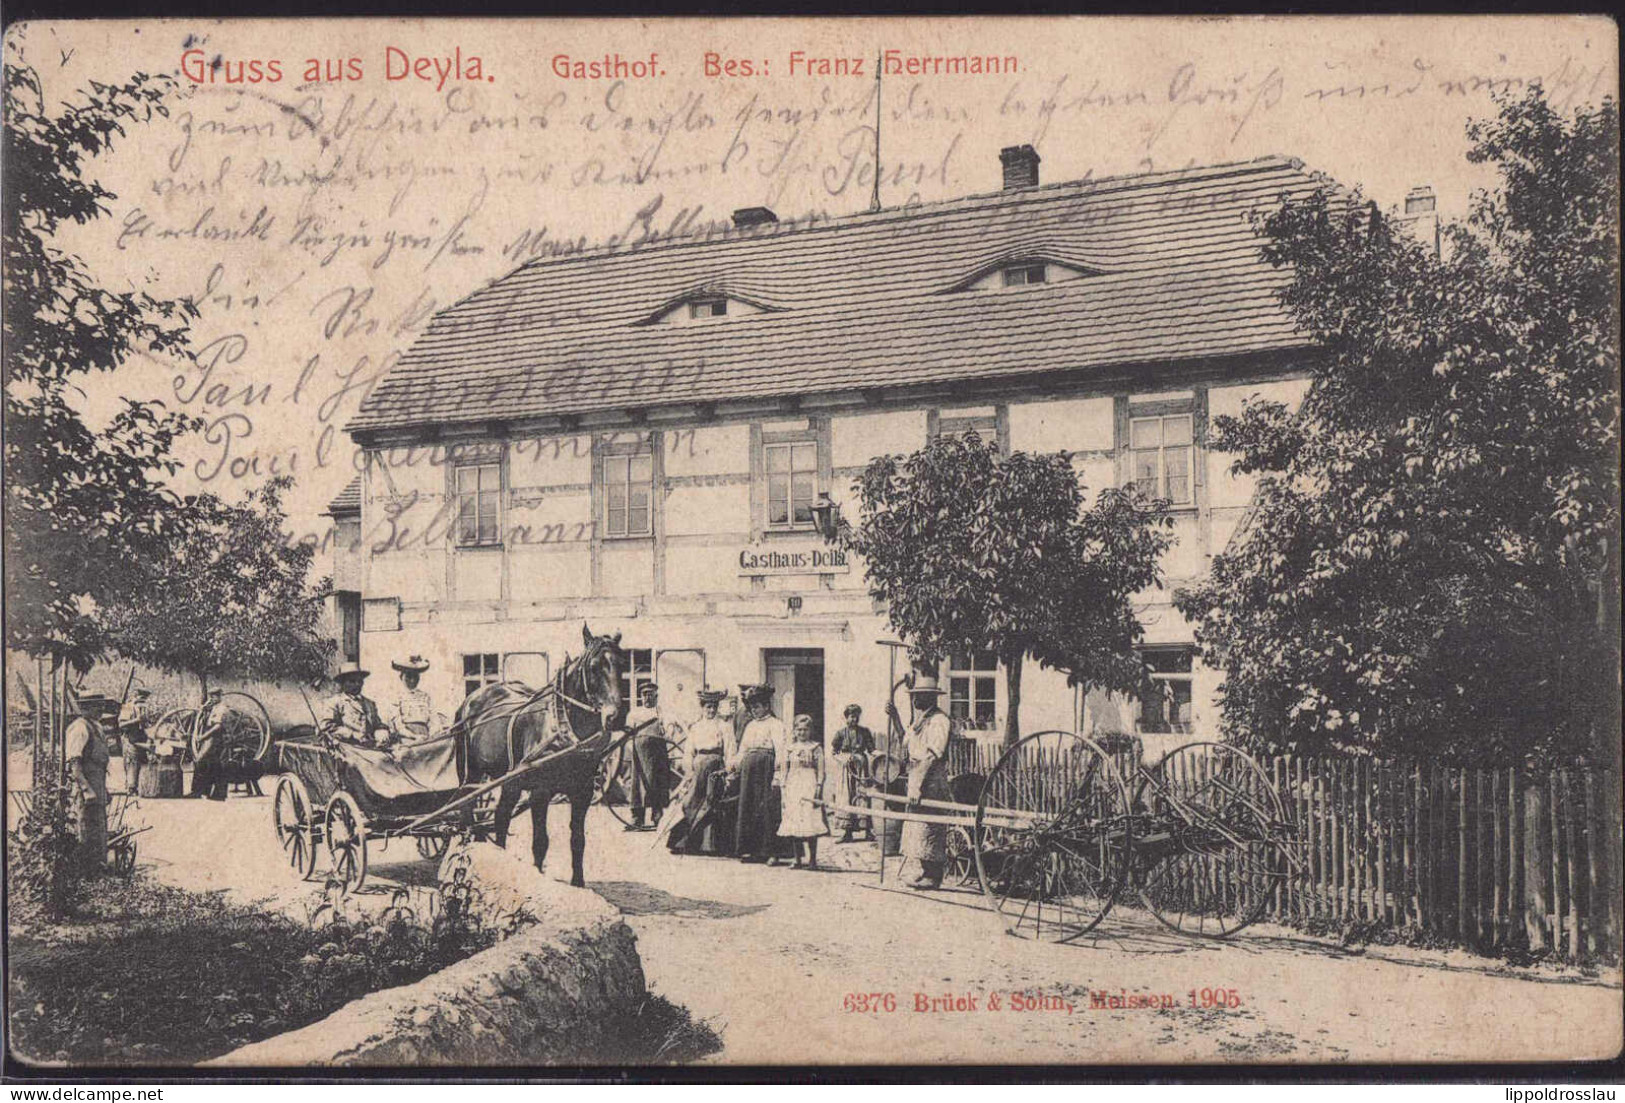 Gruss aus Deyla. Gasthof. Bes.: Franz Herrmann.
zum Abschied aus Deyla sendet den letzten Gruß und wünscht
viel Vergnügen zur Kirmes. Ihr Paul.
Es erlaubt Sie zu grüßen Max Bellmann
die Rekruten
Paul Hermann
Paul
Max Bellmann
Gasthaus-Deila.
6376 Brück & Sohn, Meissen. 1905
lippoldrosslau